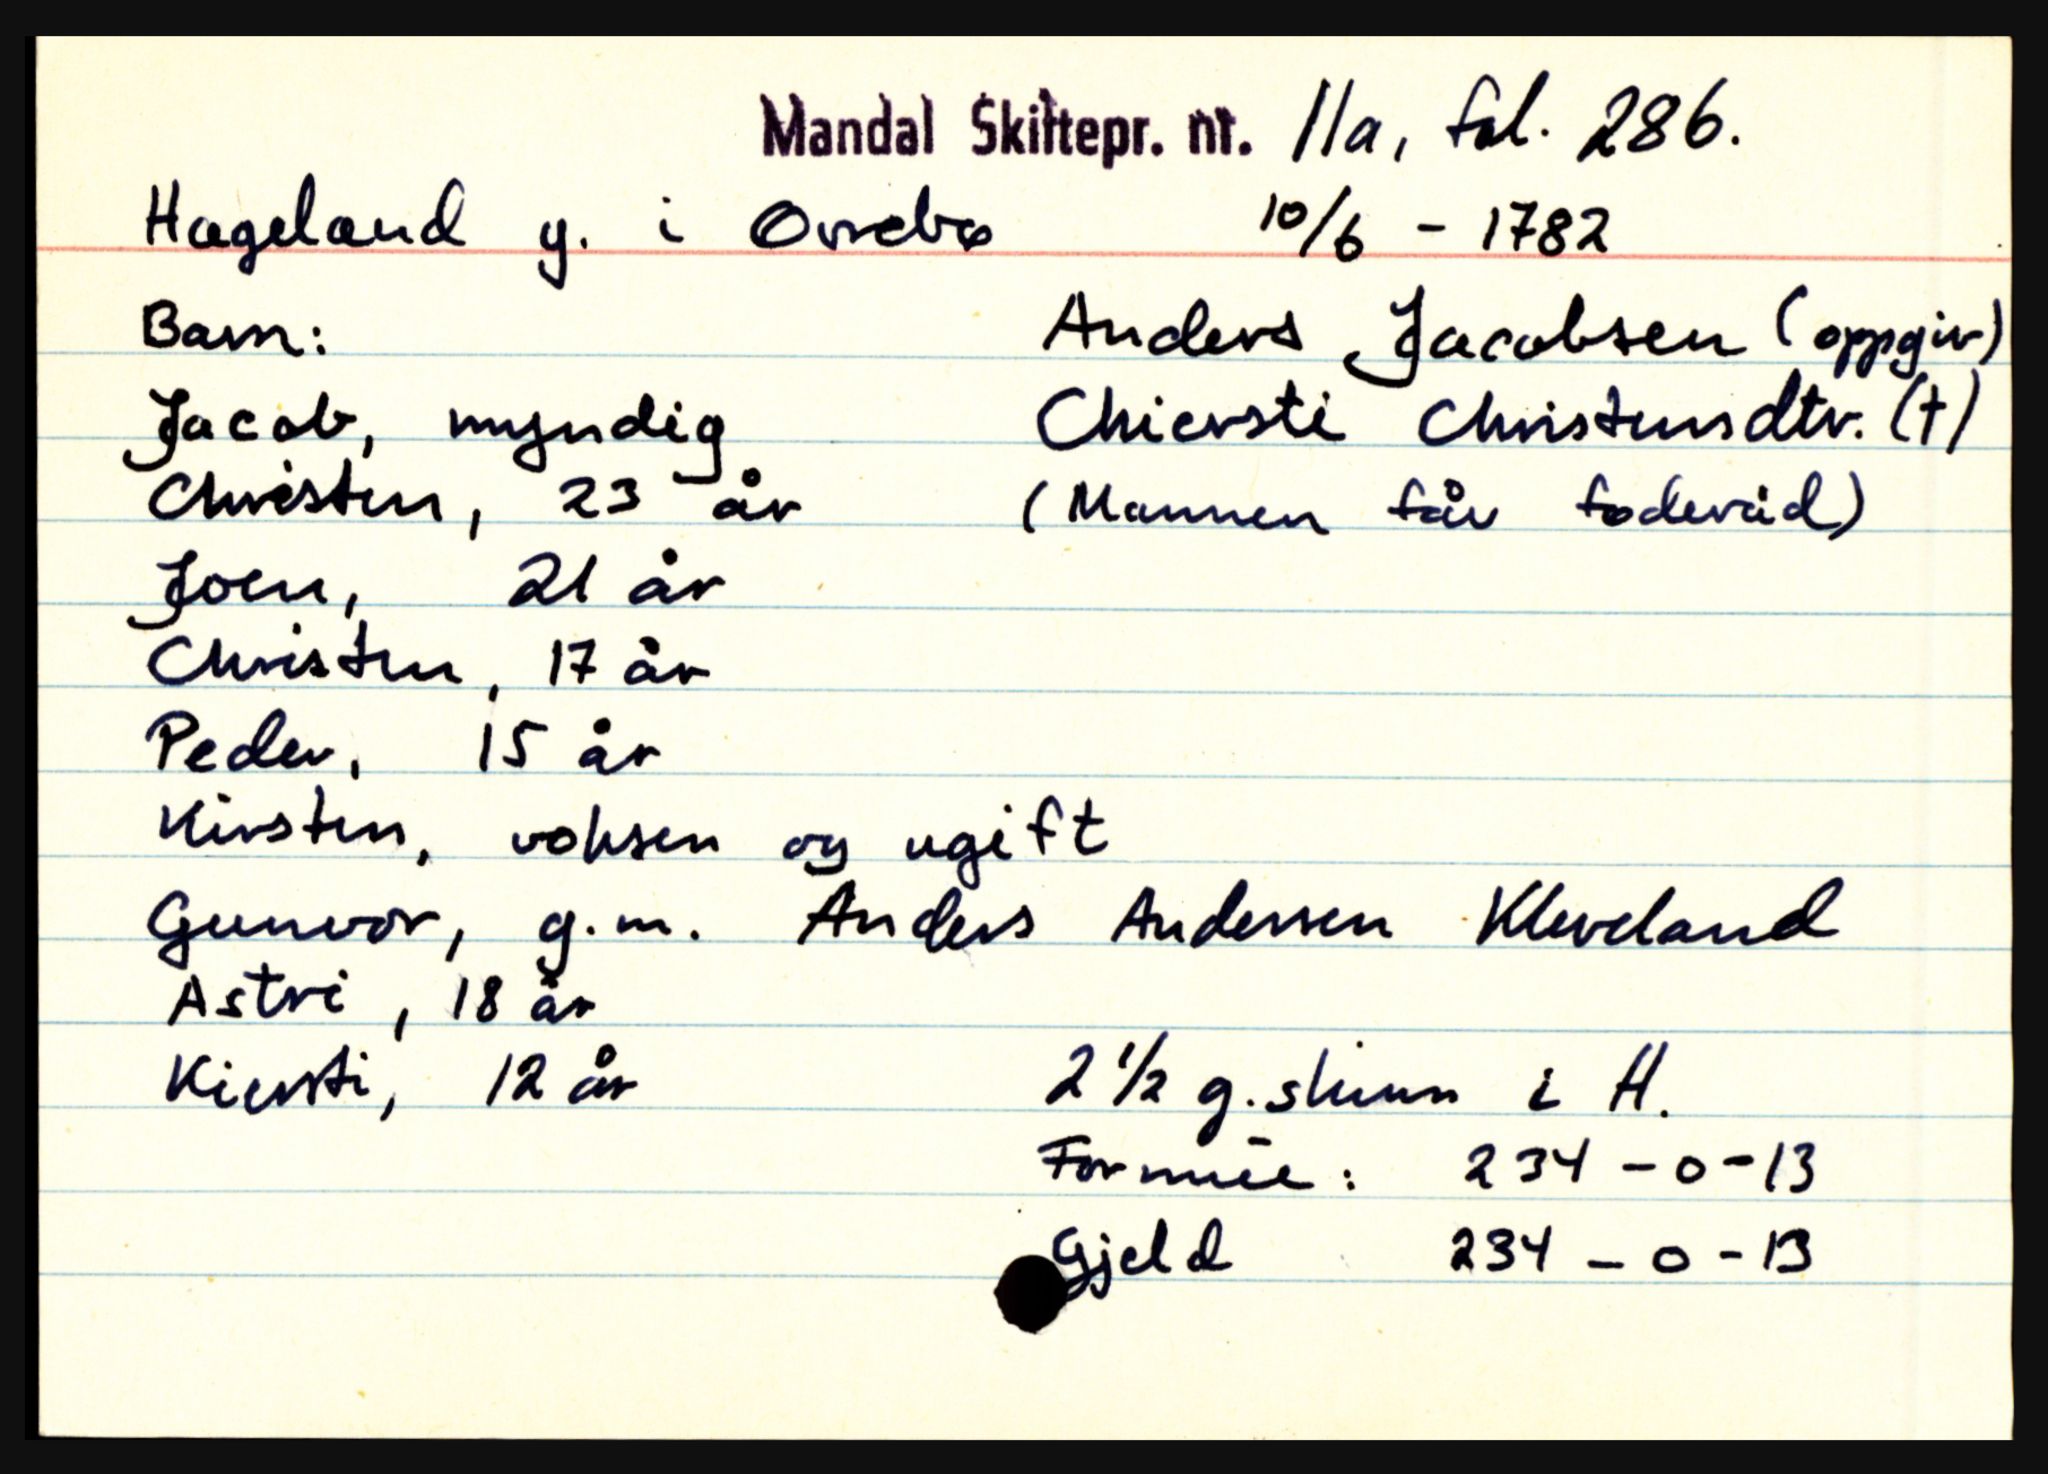 Mandal Skiftepr. nr. 11a, fol. 286.
Hægeland y. i Øvrebø 10/6 - 1782
Barn: Anders Jacobsen (oppgiv)
Jacob, myndig Chiersti Christensdtr. (†)
Christen, 23 år (Mannen får føderåd)
Joen, 21 år
Christen, 17 år
Peder, 15 år
Kirsten, voksen og ugift
Gunvor, g.m. Anders Andersen Kleveland
Astri, 18 år
Kiersti, 12 år 2 1/2 g. skinn i H.
Formue: 234 - 0 - 13
Gjeld 234 - 0 - 13